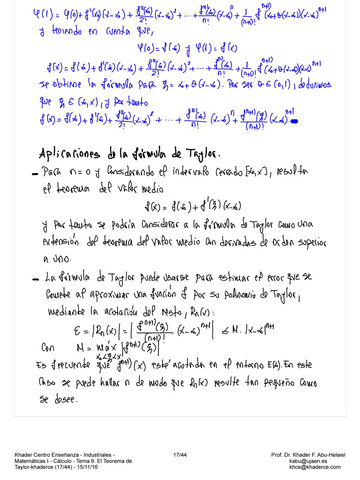 φ(1) = φ(0) + f'(α)(x-α) + f''(α)/2! (x-α)² + ... + fⁿ⁾(α)/n! (x-α)ⁿ + 1/(n+1)! fⁿ⁺¹⁾(α+θ(x-α))(x-α)ⁿ⁺¹
y teniendo en cuenta que,
φ(0) = f(α) y φ(1) = f(x)
f(x) = f(α) + f'(α)(x-α) + f''(α)/2! (x-α)² + ... + fⁿ⁾(α)/n! (x-α)ⁿ + 1/(n+1)! fⁿ⁺¹⁾(α+θ(x-α))(x-α)ⁿ⁺¹
se obtiene la fórmula para ξ = α + θ(x-α). Por ser θ ∈ (0,1), deducimos
que ξ ∈ (α,x), y por tanto
f(x) = f(α) + f'(α) + f''(α)/2! (x-α)² + ... + fⁿ⁾(α)/n! (x-α)ⁿ + fⁿ⁺¹⁾(ξ)/(n+1)! (x-α)ⁿ⁺¹
Aplicaciones de la fórmula de Taylor.
- Para n=0 y considerando el intervalo cerrado [α,x], resulta
el teorema del valor medio
f(x) = f(α) + f'(ξ)(x-α)
y por tanto se podría considerar a la fórmula de Taylor como una
extensión del teorema del valor medio con derivadas de orden superior
a uno.
- La fórmula de Taylor puede usarse para estimar el error que se
comete al aproximar una función f por su polinomio de Taylor,
mediante la acotación del resto, Rn(x):
E = |Rn(x)| = |fⁿ⁺¹⁾(ξ)/(n+1)! (x-α)ⁿ⁺¹| ≤ M·|x-α|ⁿ⁺¹
Con M = máx |fⁿ⁺¹⁾(ξ)|
Es frecuente que fⁿ⁺¹⁾(x) esté acotada en el entorno E(α). En este
caso se puede hallar n de modo que Rn(x) resulte tan pequeño como
se desee.
Khader Centro Enseñanza - Industriales -
Matemáticas I - Cálculo - Tema 9. El Teorema de
Taylor-khaderce (17/44) - 15/11/16
17/44
Prof. Dr. Khader F. Abu-Helaiel
kabu@ujaen.es
khce@khaderce.com